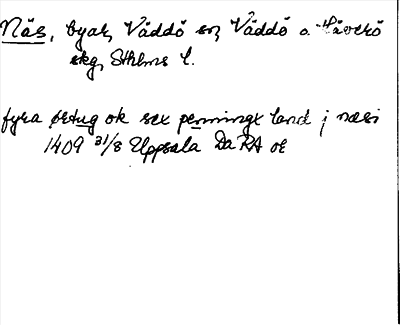 Näs, byar, Väddö sn, Väddö o Häverö
skg, Sthlms l.
fyra ørtug ok sex pænningx land j næsi
1409 31/8 Uppsala Da RA or